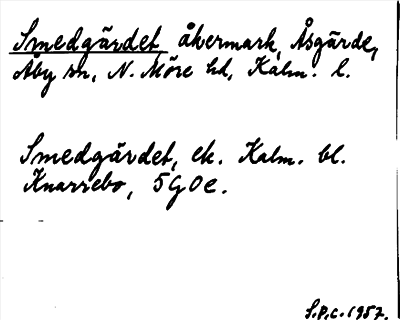 Smedgärdet åkermark, Åsgärde,
Åby sn, N. Möre hd, Kalm. l.
Smedgärdet, ek. Kalm. bl.
Knarrebo, 5G0e.
S.P.C. 1957.